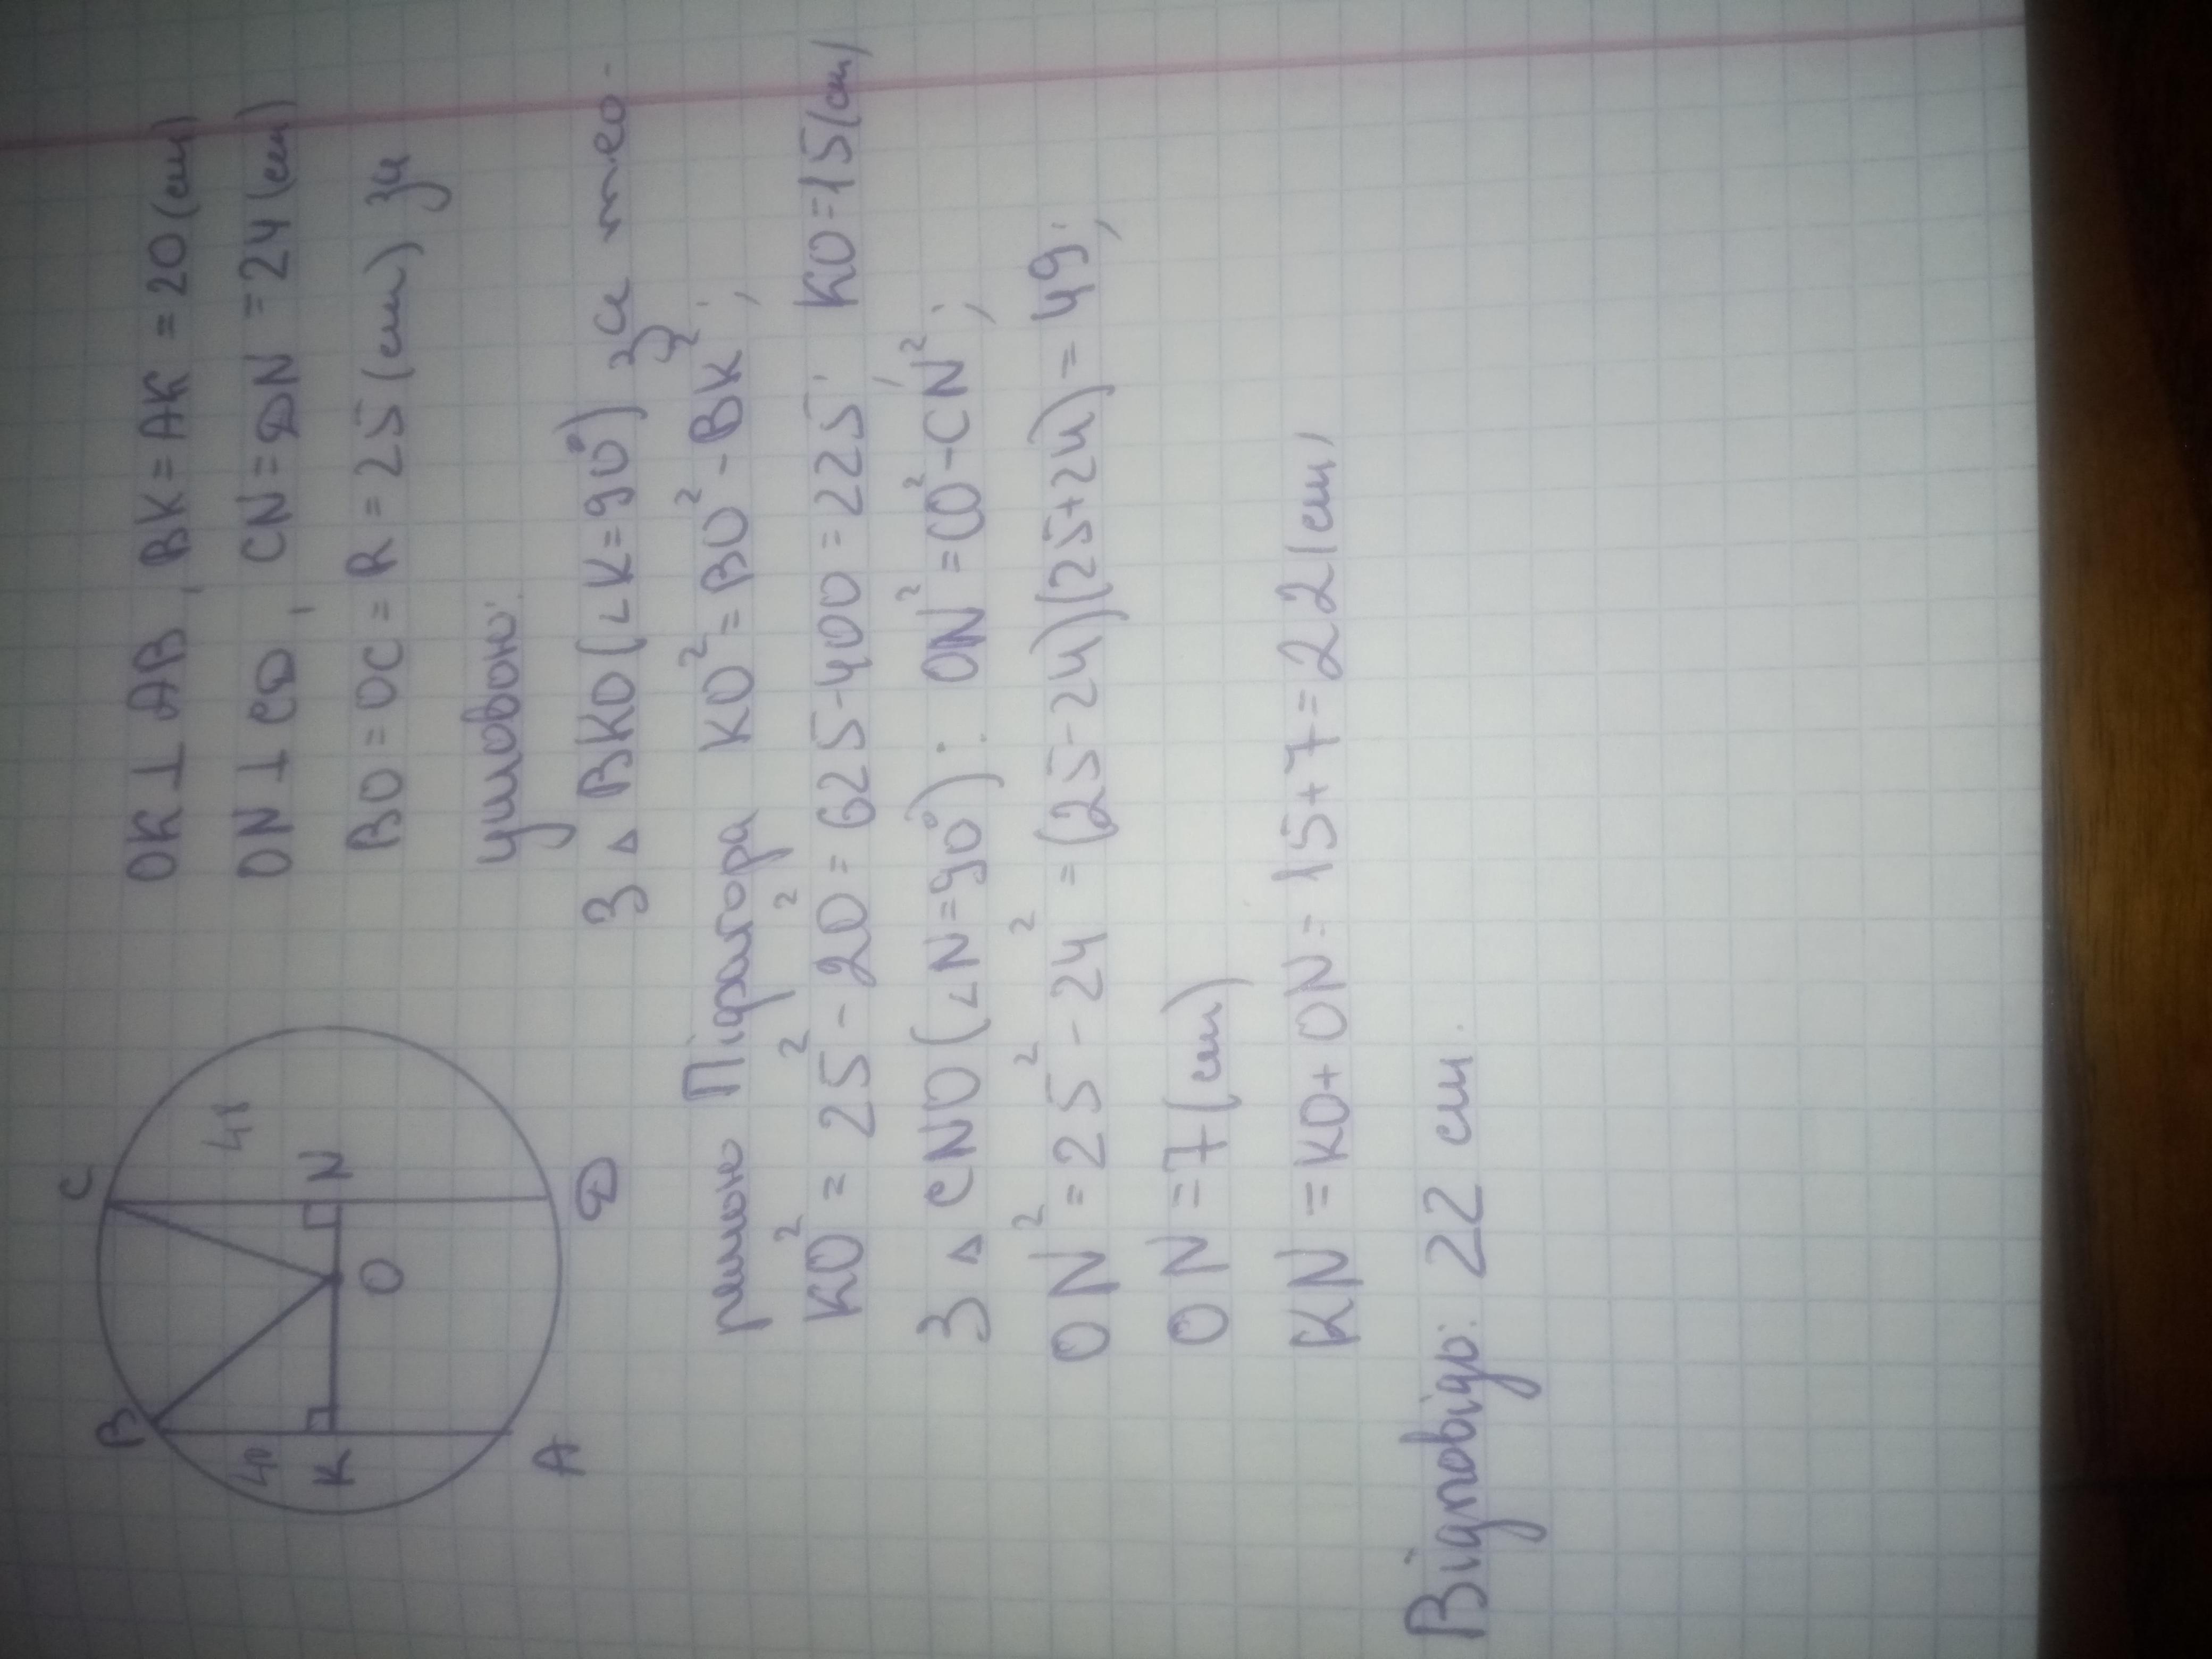 B
C
40
48
K
N
O
A
D
OK ⊥ AB, BK = AK = 20 (см)
ON ⊥ CD, CN = DN = 24 (см)
BO = OC = R = 25 (см) за
умовою.
З △ BKO (∠K = 90°) за тео-
ремою Піфагора KO² = BO² - BK²;
KO² = 25² - 20² = 625 - 400 = 225; KO = 15 (см)
З △ CNO (∠N = 90°): ON² = CO² - CN²;
ON² = 25² - 24² = (25 - 24)(25 + 24) = 49;
ON = 7 (см)
KN = KO + ON = 15 + 7 = 22 (см)
Відповідь: 22 см.